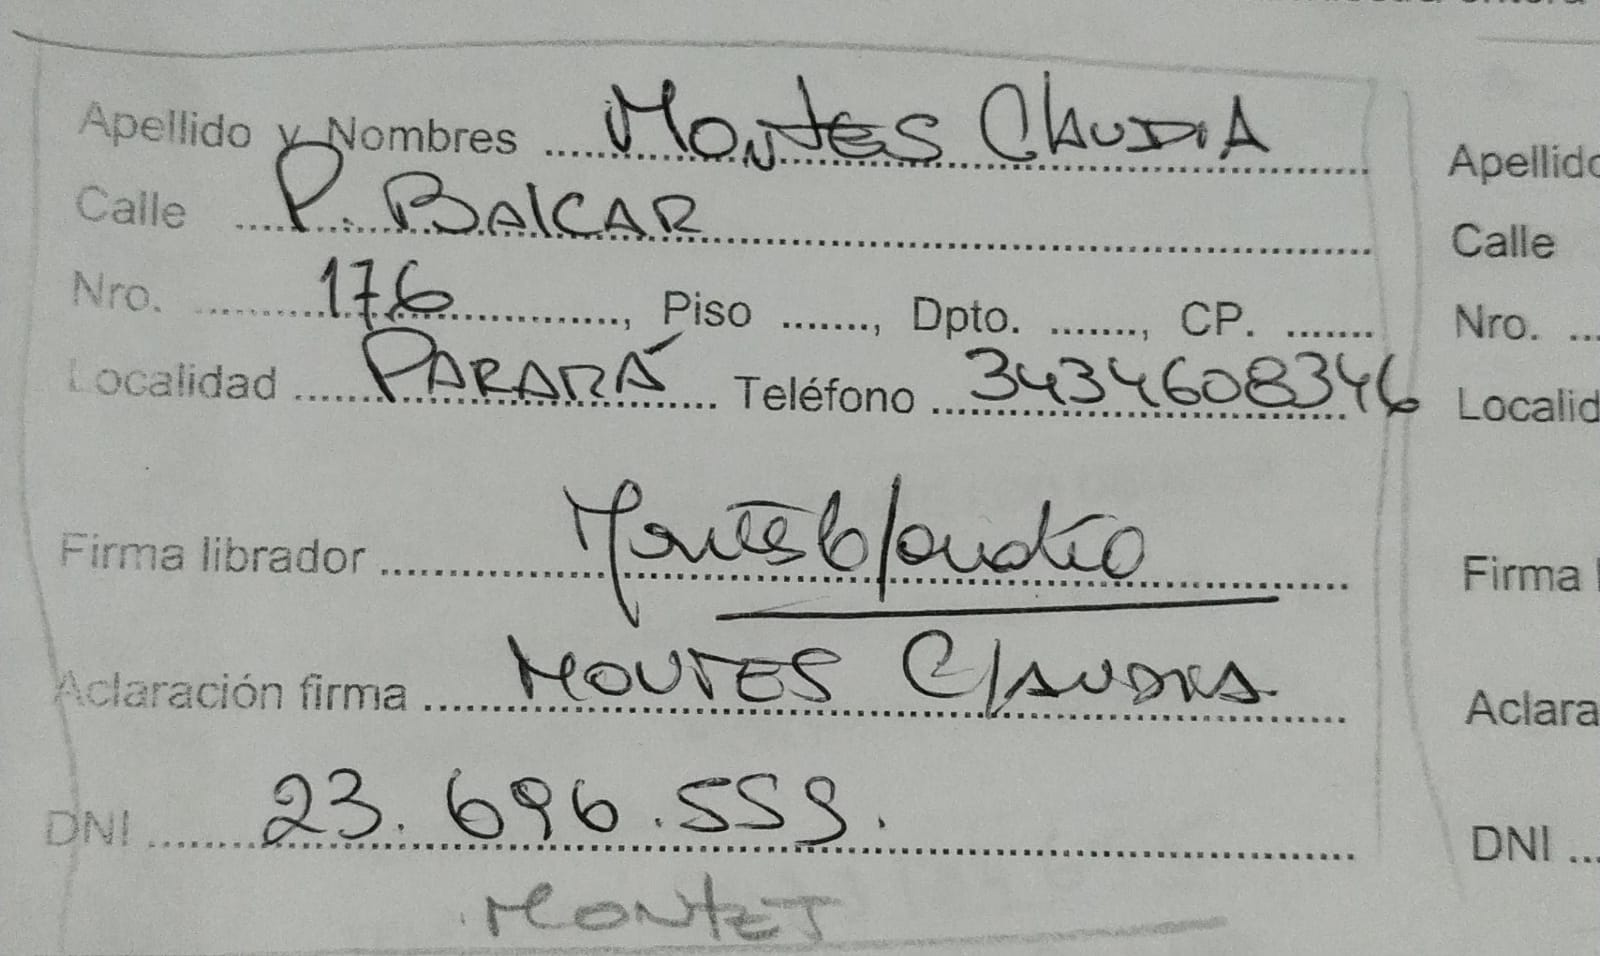 Apellido y Nombres ..... MONTES CLAUDIA
Calle ..... P. BALCAR
Nro. ..... 176 ....., Piso ......., Dpto. ......., CP. .......
Localidad ..... PARANÁ ..... Teléfono ..... 3434608346
Firma librador ..... Montes Claudia
Aclaración firma ..... MONTES CLAUDIA
DNI ..... 23.696.559.
MONTES
Apellido
Calle
Nro. ...
Localid
Firma l
Aclara
DNI ...